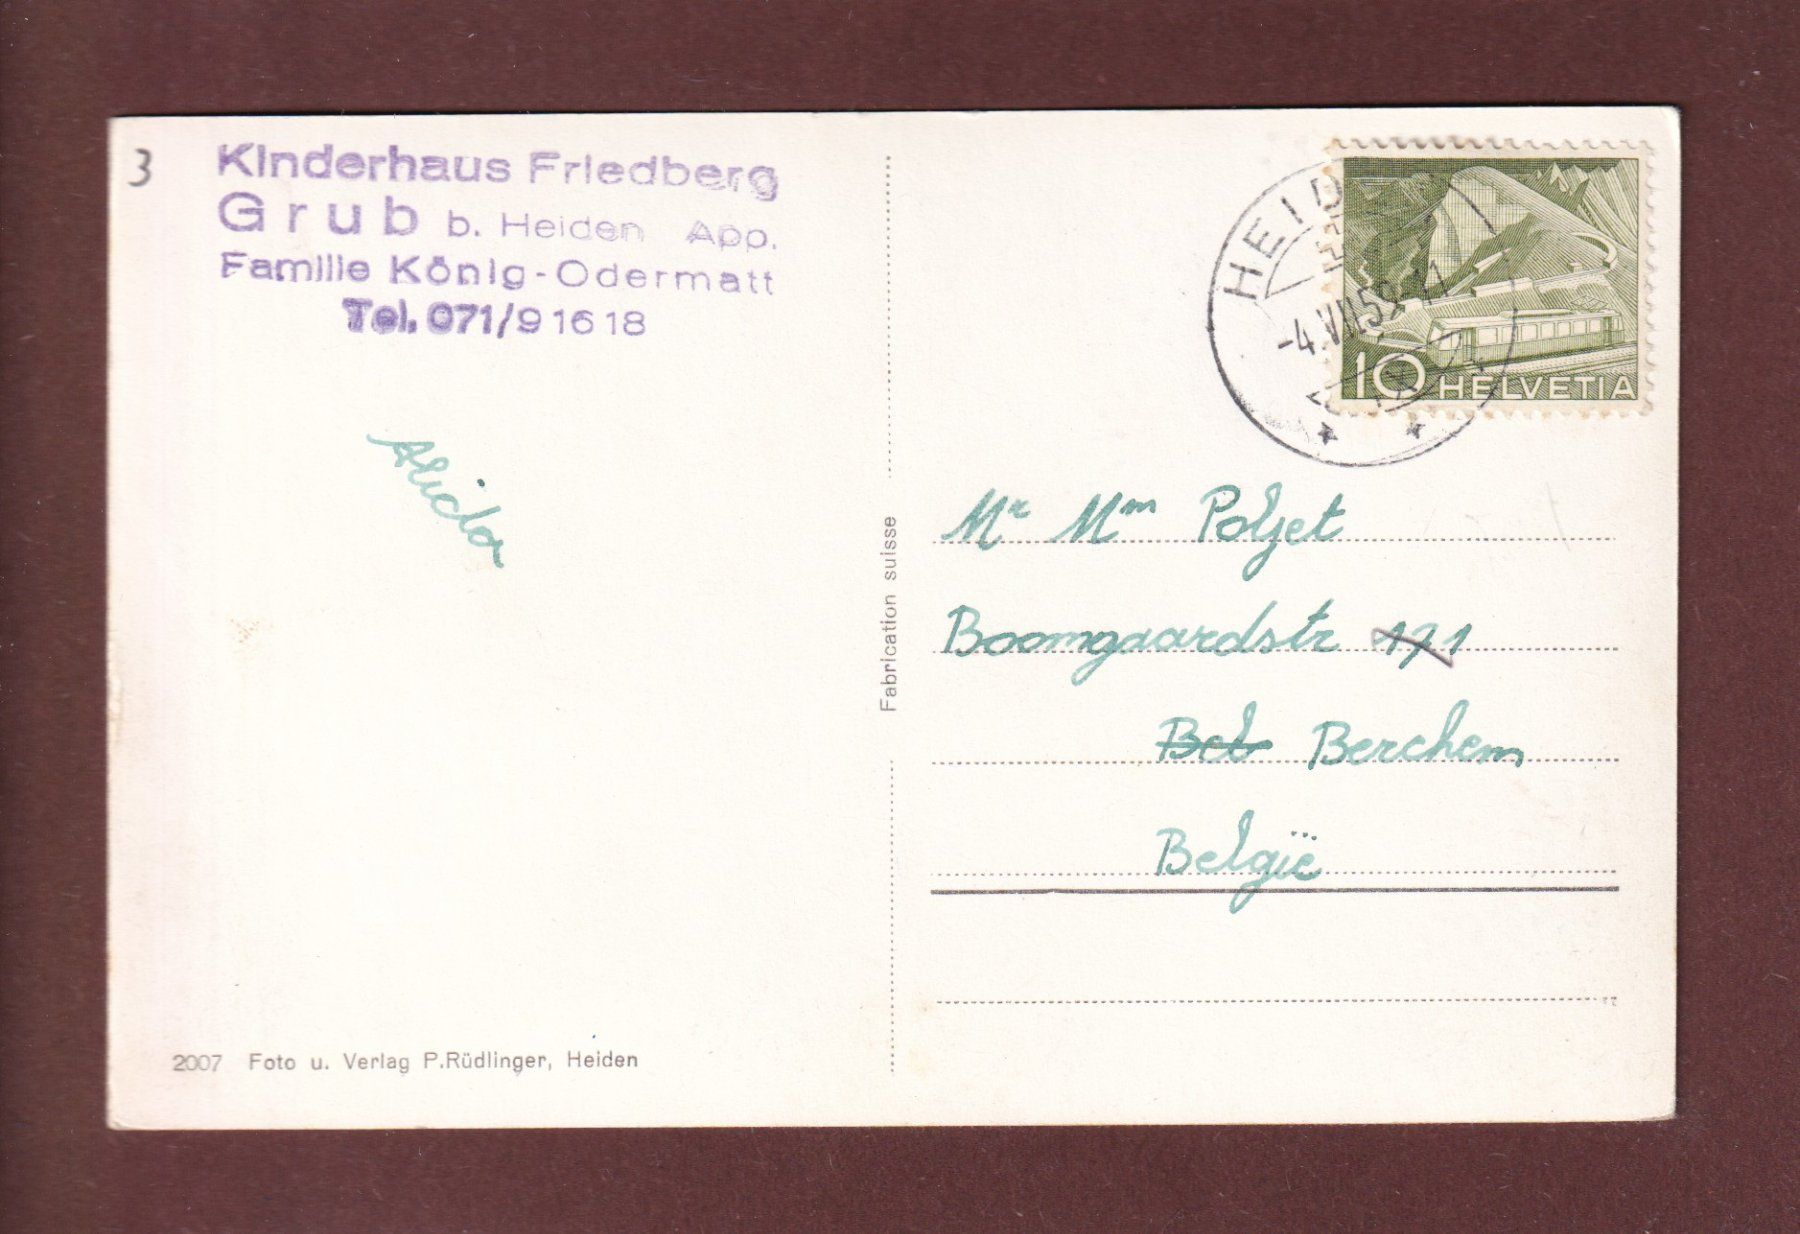 3
Kinderhaus Friedberg
Grub b. Heiden App.
Familie König-Odermatt
Tel. 071/9 16 18
Alida
2007 Foto u. Verlag P.Rüdlinger, Heiden
Fabrication suisse
HEID
-4.VII.59
10 HELVETIA
Mr Mm Poljet
Boomgaardstr 171
Bel Berchem
België